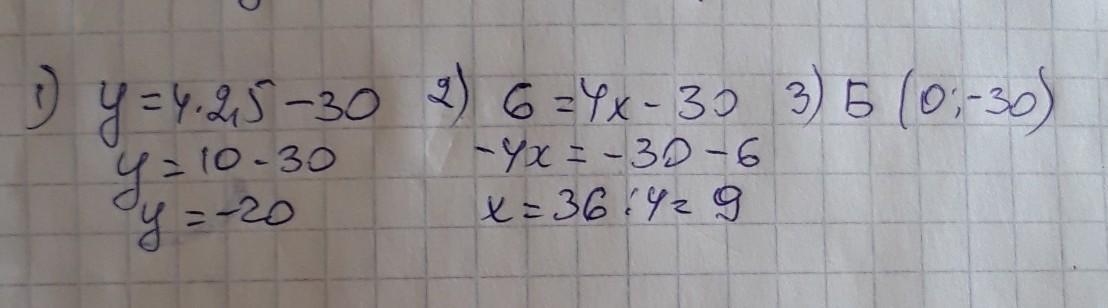 1) y = 4 · 2,5 - 30 2) 6 = 4x - 30 3) Б (0; -30)
y = 10 - 30 -4x = -30 - 6
y = -20 x = 36 : 4 = 9